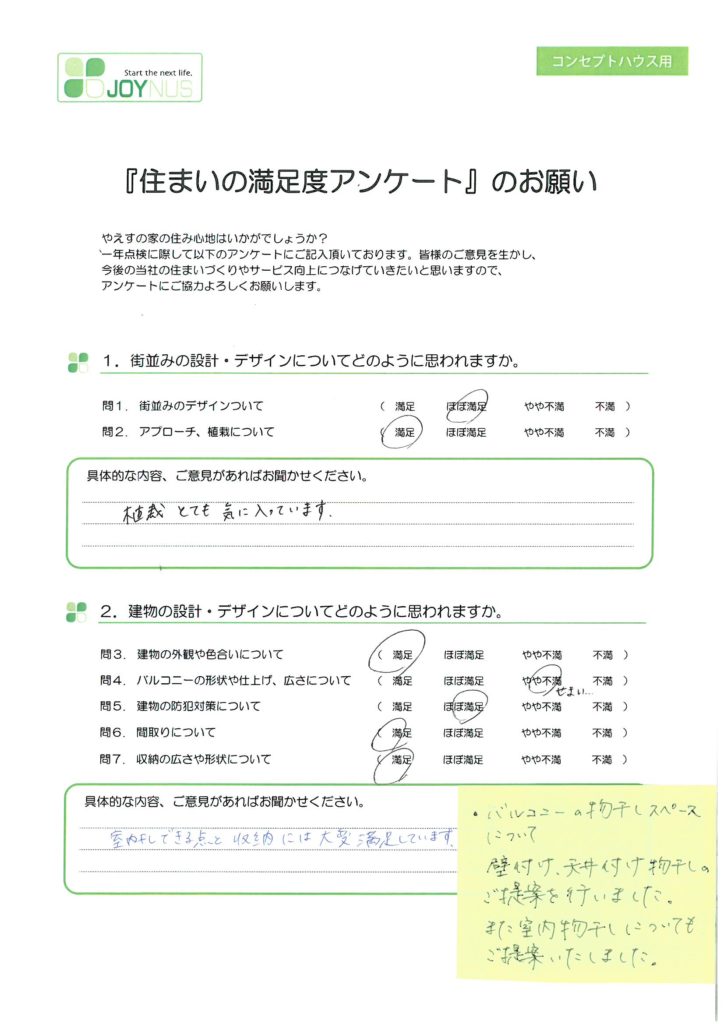 Start the next life.
JOYNUS
コンセプトハウス用
『住まいの満足度アンケート』のお願い
やえすの家の住み心地はいかがでしょうか？
一年点検に際して以下のアンケートにご記入頂いております。皆様のご意見を生かし、
今後の当社の住まいづくりやサービス向上につなげていきたいと思いますので、
アンケートにご協力よろしくお願いします。
１．街並みの設計・デザインについてどのように思われますか。
問１．街並みのデザインついて （ 満足 ほぼ満足 やや不満 不満 ）
問２．アプローチ、植栽について （ 満足 ほぼ満足 やや不満 不満 ）
具体的な内容、ご意見があればお聞かせください。
植栽 とても 気に入っています.
２．建物の設計・デザインについてどのように思われますか。
問３．建物の外観や色合いについて （ 満足 ほぼ満足 やや不満 不満 ）
問４．バルコニーの形状や仕上げ、広さについて （ 満足 ほぼ満足 やや不満 不満 ）
せまい...
問５．建物の防犯対策について （ 満足 ほぼ満足 やや不満 不満 ）
問６．間取りについて （ 満足 ほぼ満足 やや不満 不満 ）
問７．収納の広さや形状について （ 満足 ほぼ満足 やや不満 不満 ）
具体的な内容、ご意見があればお聞かせください。
室内干しできる点と 収納には大変満足しています.
・バルコニーの物干しスペース
について
壁付け、天井付け物干しの
ご提案を行いました。
また室内物干しについても
ご提案いたしました。